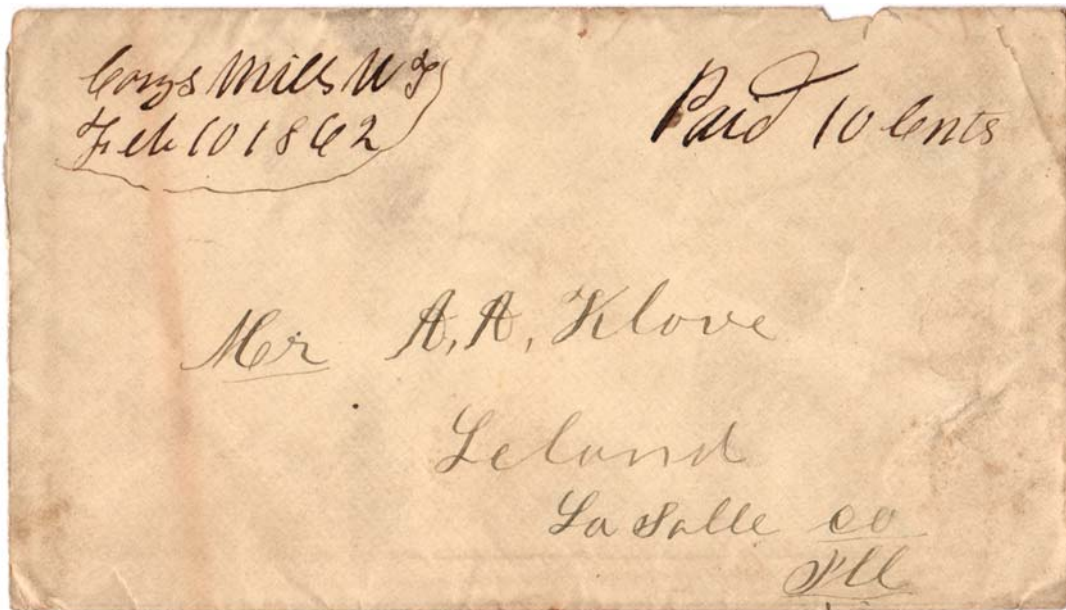 Corys Mills W T
Feb 10 1862
Paid 10 Cents
Mr A, A, Klove
Leland
La Salle co
Ill